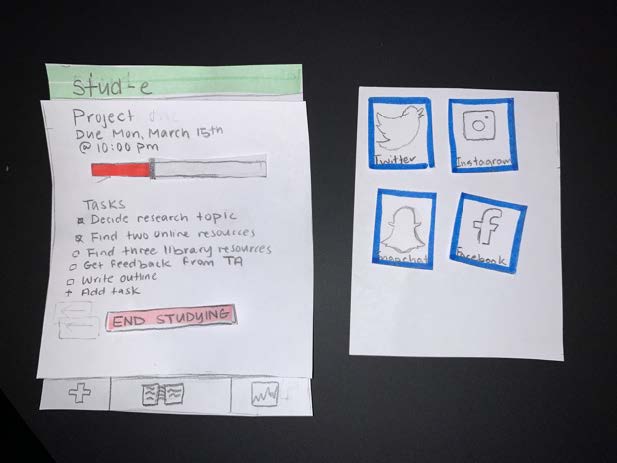 stud-e
Project
Due Mon, March 15th
@ 10:00 pm
Tasks
Decide research topic
Find two online resources
Find three library resources
Get feedback from TA
Write outline
+ Add task
END STUDYING
Twitter
Instagram
Snapchat
Facebook